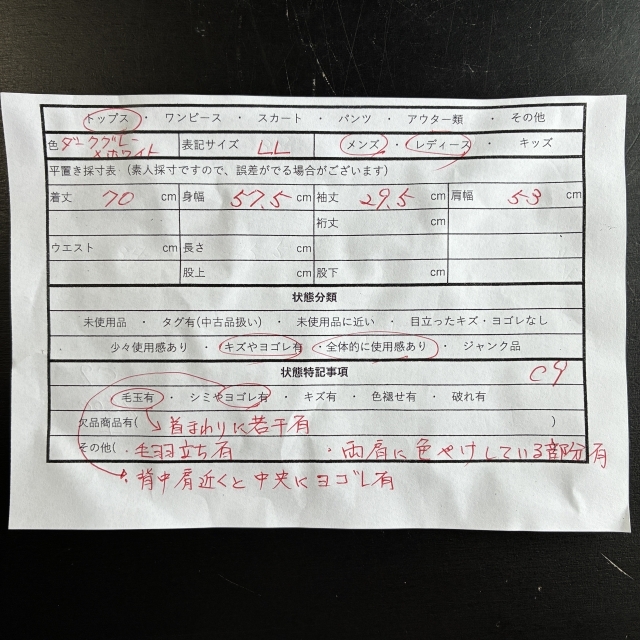 トップス ・ ワンピース ・ スカート ・ パンツ ・ アウター類 ・ その他
色 ダークグレー×ホワイト 表記サイズ LL メンズ ・ レディース ・ キッズ
平置き採寸表 (素人採寸ですので、誤差がでる場合がございます)
着丈 70 cm 身幅 57.5 cm 袖丈 29.5 cm 肩幅 53 cm
裄丈 cm
ウエスト cm 長さ cm
股上 cm 股下 cm
状態分類
未使用品 ・ タグ有(中古品扱い) ・ 未使用品に近い ・ 目立ったキズ・ヨゴレなし
少々使用感あり ・ キズやヨゴレ有 ・ 全体的に使用感あり ・ ジャンク品
状態特記事項 C9
毛玉有 ・ シミやヨゴレ有 ・ キズ有 ・ 色褪せ有 ・ 破れ有
欠品商品有( 首まわりに若干有 )
その他( ・毛羽立ち有 ・両肩に色やけしている部分有
・背中肩近くと中央にヨゴレ有